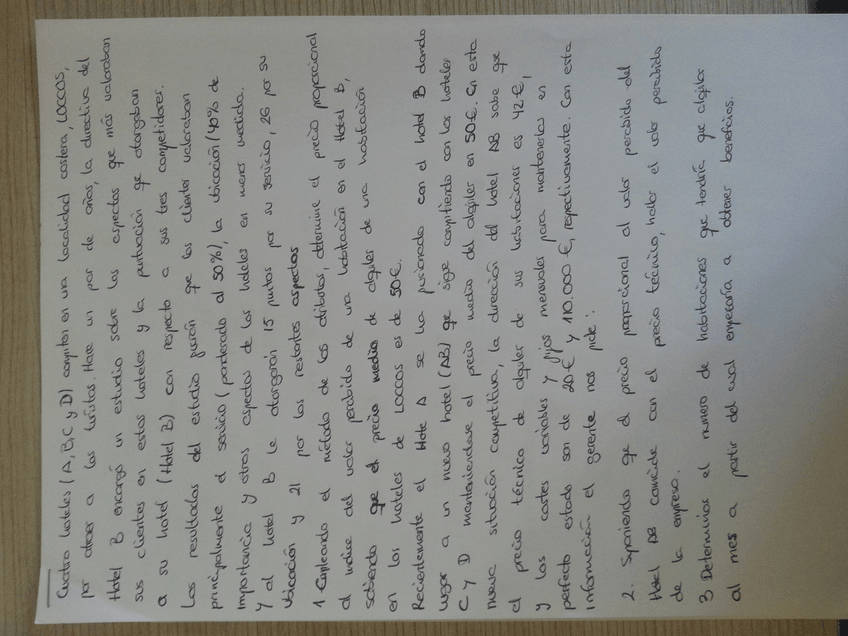 Cuatro hoteles (A, B, C y D) compiten en una localidad costera, LOCCOS,
por atraer a los turistas. Hace un par de años, la directiva del
Hotel B encargó un estudio sobre los aspectos que más valoraban
sus clientes en estos hoteles y la puntuación que otorgaban
a su hotel (Hotel B) con respecto a sus tres competidores.
Los resultados del estudio fueron que los clientes valoraban
principalmente el servicio (ponderado al 50%), la ubicación (40% de
importancia y otros aspectos de los hoteles en menos medida.
Y al hotel B le otorgarón 15 puntos por su servicio, 26 por su
ubicación y 21 por los restantes aspectos
1- Empleando el método de los atributos, determine el precio proporcional
al indice del valor percibido de una habitación en el Hotel B,
sabiendo que el precio medio de alquiler de una habitación
en los hoteles de LOCCOS es de 50€.
Recientemente el Hote A se ha fusionado con el hotel B dando
lugar a un nuevo hotel (AB) que sigue compitiendo con los hoteles
C y D manteniendose el precio medio del alquiler en 50€. En esta
nueva situación competitiva, la dirección del hotel AB sabe que
el precio técnico de alquiler de sus habitaciones es 42€,
y los costes variables y fijos mensuales para mantenerlas en
perfecto estado son de 20€ y 110.000€, respectivamente. Con esta
información el gerente nos pide:
2. Suponiendo que el precio proporcional al valor percibido del
Hotel AB coincide con el precio técnico, hallar el valor percibido
de la empresa.
3 Determinar el numero de habitaciones que tendría que alquilar
al mes a partir del cual empezaría a obtener beneficios.